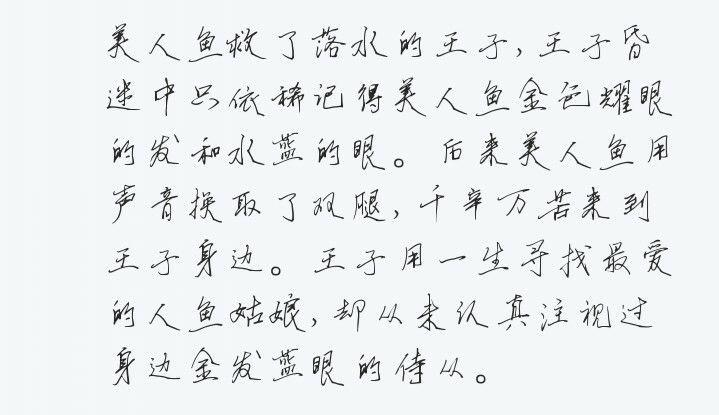 美人鱼救了落水的王子，王子昏
迷中只依稀记得美人鱼金色耀眼
的发和水蓝的眼。后来美人鱼用
声音换取了双腿，千辛万苦来到
王子身边。王子用一生寻找最爱
的人鱼姑娘，却从来认真注视过
身边金发蓝眼的侍从。